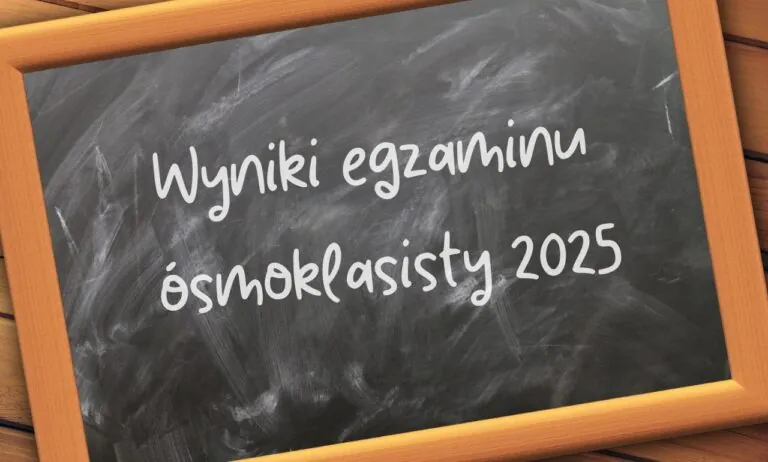 Wyniki egzaminu
ósmoklasisty 2025